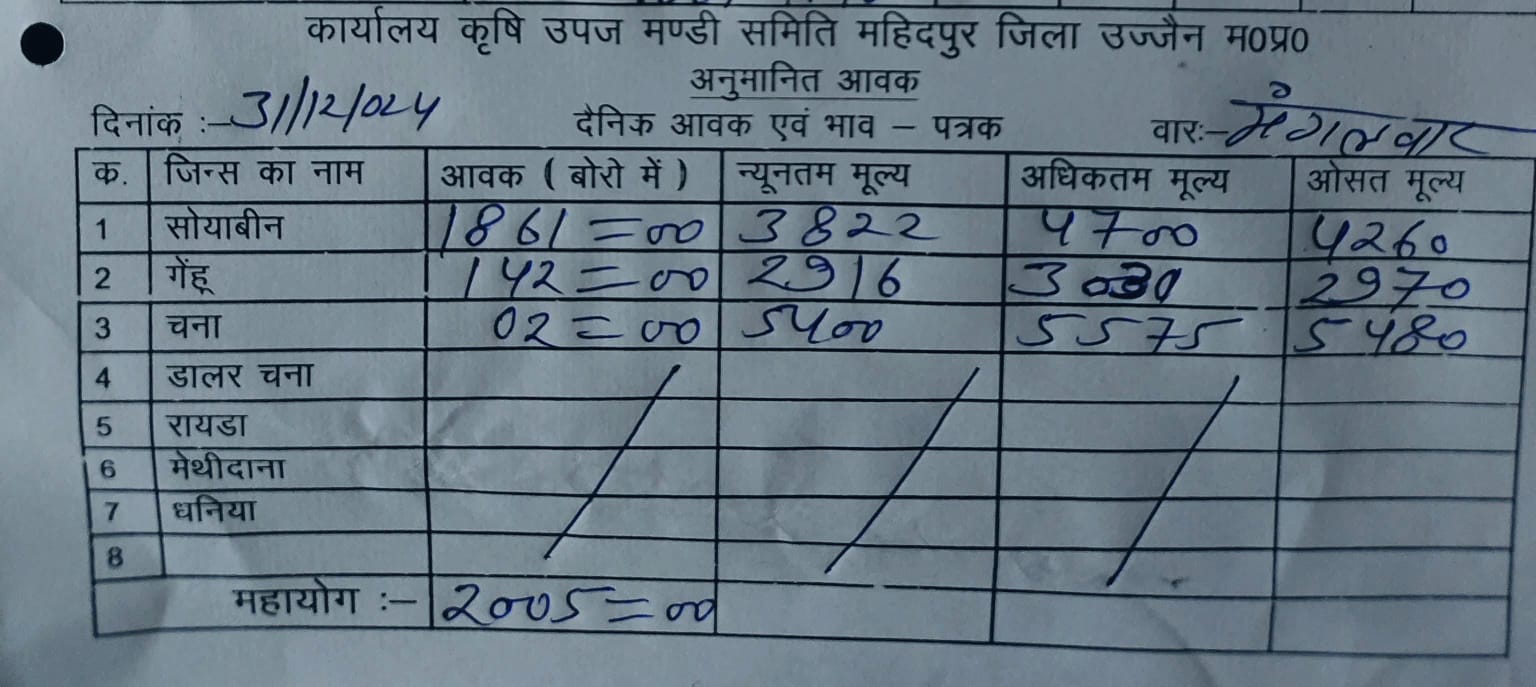 कार्यालय कृषि उपज मण्डी समिति महिदपुर जिला उज्जैन म0प्र0
अनुमानित आवक
दिनांक :- 31/12/024 दैनिक आवक एवं भाव – पत्रक वारः- मंगलवार
क. जिन्स का नाम आवक ( बोरो में ) न्यूनतम मूल्य अधिकतम मूल्य ओसत मूल्य
1 सोयाबीन 1861=00 3822 4700 4260
2 गेंहू 142=00 2916 3030 2970
3 चना 02=00 5400 5575 5480
4 डालर चना
5 रायडा
6 मेथीदाना
7 धनिया
8
महायोग :– 2005=00